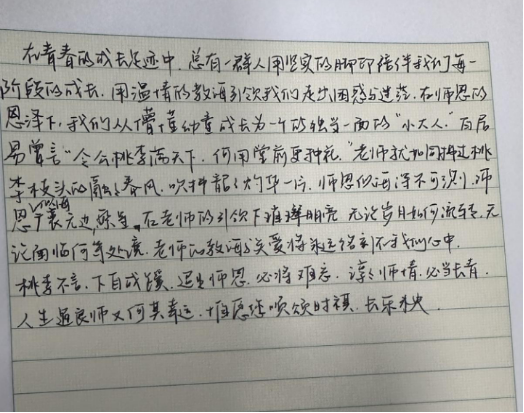 在青春的成长足迹中,总有一群人用坚实的脚印陪伴我们每一
阶段的成长,用温情的教诲引领我们走出困惑与迷茫。在师恩的
恩泽下,我们从懵懂幼童成长为一个能独当一面的“小大人”。白居
易曾言“令公桃李满天下,何用堂前更种花。”老师就如同拂过桃
李枝头的融融春风,吹得龍了灼华一片。师恩似海深不可测,师
恩似海广袤无边,在老师的引领下璀璨明亮,无论岁月如何流转,无
论面临何等处境,老师的教诲与关爱将永远铭刻于我们心中。
桃李不言,下自成蹊,迢迢师恩,必将难忘,谆谆师情,必当长青。
人生遇良师又何其幸运,惟愿您顺颂时祺,长乐未央